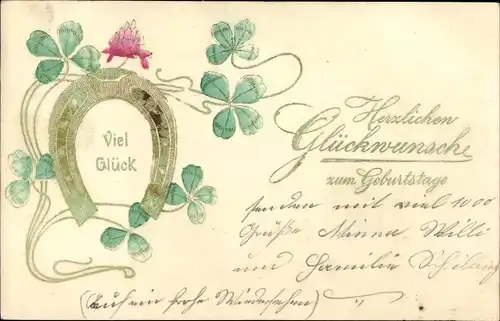 Viel
Glück
Herzlichen
Glückwunsch
zum Geburtstage
senden mit viel 1000
Grüße Minna Willi
und Familie
(Auf ein frohe Wiedersehen)